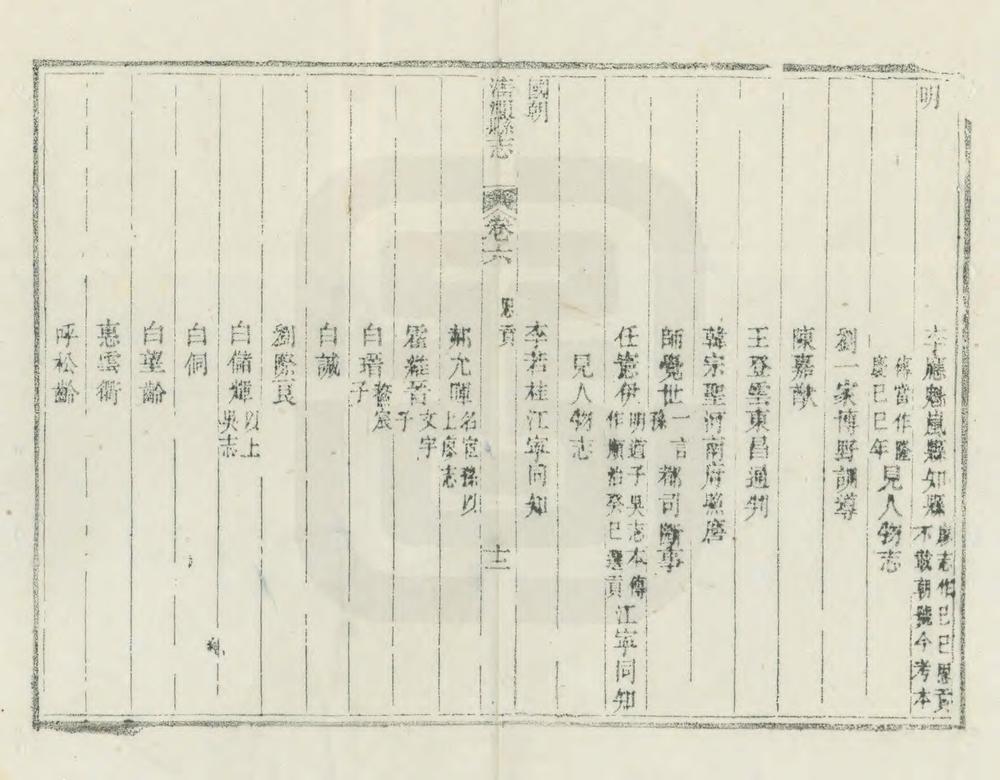 明
李應魁嵐縣知縣廖志作己巳恩貢不載朝號今考本
傳當作隆慶己巳年見人物志
劉一家博野訓導
陳嘉猷
王登雲東昌通判
韓宗聖河南府照磨
師覺世一言孫都司斷事
任憲伊明道子吳志本傳作順治癸巳選貢江寧同知
見人物志
國朝
李若桂江寧同知
清澗縣志 卷六 恩貢 十二
郝允暉名宦孫以上廖志
霍維晉文宇子
白瑨養宸子
白誠
劉際良
白儲燀以上吳志
白侗
白望齡
惠雲衢
呼松齡